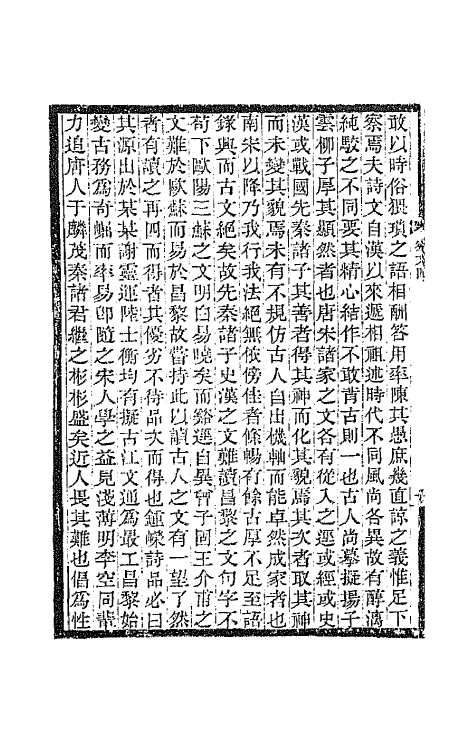 敢以時俗猥瑣之語相酬答用率陳其愚庶幾直諒之義惟足下
察焉夫詩文自漢以來遞相祖述時代不同風尚各異故有醇漓
純駁之不同要其精心結作不敢背古則一也古人尚摹擬揚子
雲柳子厚其顯然者也唐宋諸家之文各有從入之逕或經或史
漢或戰國先秦諸子其善者得其神而化其貌焉其次者取其神
而未變其貌焉未有不規仿古人自出機軸而能卓然成家者也
南宋以降乃我行我法絕無依傍佳者條暢有餘古厚不足至語
錄興而古文絕矣故先秦諸子史漢之文難讀昌黎之文句字不
苟下歐陽三蘇之文明白易曉矣而谿逕自異曾子固王介甫之
文難於歐蘇而易於昌黎故嘗持此以讀古人之文有一望了然
者有讀之再四而得者其優劣不待品次而得也鍾嶸詩品必曰
其源出於某某謝靈運陸士衡均有擬古江文通爲最工昌黎始
變古務爲奇崛而率易卽隨之宋人學之益見淺薄明李空同輩
力追唐人于鱗茂秦諸君繼之彬彬盛矣近人畏其難也倡爲性